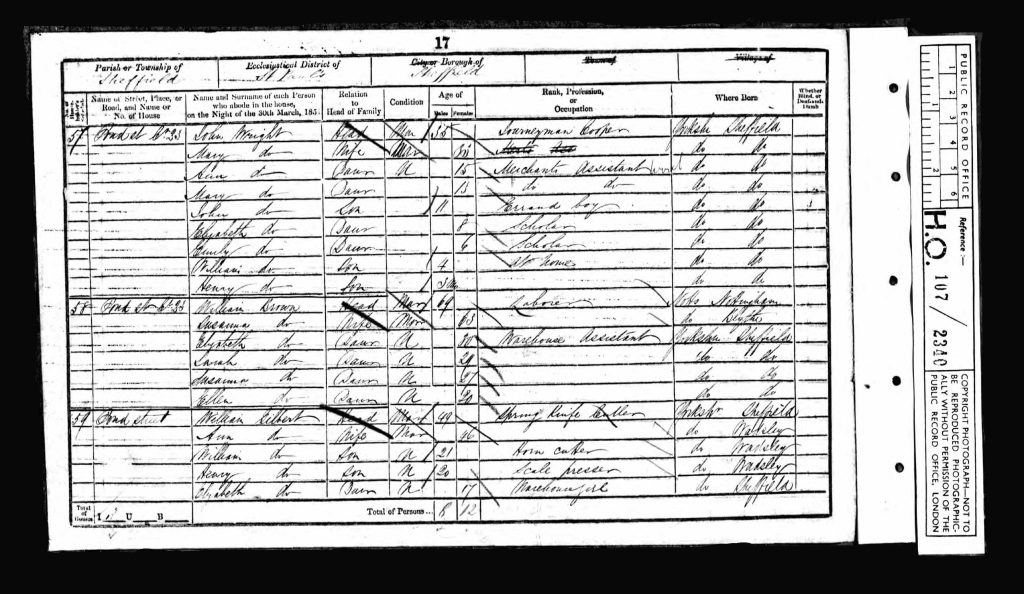 17
Parish or Township of Ecclesiastical District of City or Borough of Town of Village of
Sheffield St. Paul's Sheffield
Name of Street, Place, or Road, and Name or No. of House Name and Surname of each Person who abode in the house, on the Night of the 30th March, 1851 Relation to Head of Family Condition Age of Males Females Rank, Profession, or Occupation Where Born Whether Blind, or Deaf-and-Dumb
57 Pond st No. 23 John Wright Head Mar 35 Journeyman Cooper Sheffield
Mary do Wife Mar do do
Ann do Daur U 15 Merchants Assistant do do
Mary do Daur 13 do do do do
John do Son 11 Errand boy do do
Elizabeth do Daur 8 Scholar do do
Emily do Daur 6 Scholar do do
William do Son 4 At Home do do
Henry do Son do do
58 Pond st No. 23 William Brown Head Mar 69 Laborer Notts Nottingham
Susanna do Wife Mar 63 do Blythe
Elizabeth do Daur U 30 Warehouse Assistant Sheffield
Sarah do Daur U do do
Susanna do Daur U do do
Ellen do Daur U 20 do do
59 Pond street William Gilbert Head Mar 49 Spring Knife Cutler Sheffield
Ann do Wife Mar 46 do Wadsley
William do Son U 21 Horn cutter do Wadsley
Henry do Son U 20 Scale presser do Wadsley
Elizabeth do Daur U 17 Warehousegirl do Sheffield
Total of Houses I U B Total of Persons... 8 12
PUBLIC RECORD OFFICE
1 2
Reference :—
H.O. 107 / 2340
COPYRIGHT PHOTOGRAPH—NOT TO
BE REPRODUCED PHOTOGRAPHIC-
ALLY WITHOUT PERMISSION OF THE
PUBLIC RECORD OFFICE, LONDON